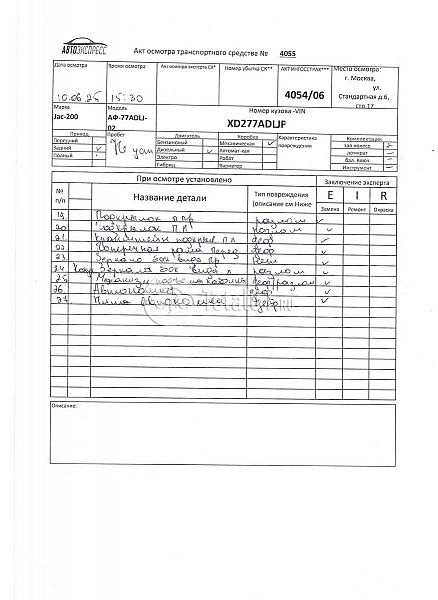 АВТОЭКСПРЕСС
Акт осмотра транспортного средства № 4055
Дата осмотра Время осмотра Акт осмотра эксперта СК* Номер убытка СК** АКТ ИНГОССТРАХ*** Место осмотра:
г. Москва,
ул.
10.06.25 15:30 4054/06 Стандартная д.6,
стр 17
Марка Модель Номер кузова -VIN
Jac-200 АФ-77ADLJ-02 XD277ADLJP
Привод Пробег Двигатель Коробка Характеристика повреждения Комплектация
Передний Бензиновый Механическая зап.колесо
Задний Дизельный Автомат-кая домкрат
Полный Электро Робот бал. Ключ
Гибрид Вариатор Инструмент
При осмотре установлено Заключение эксперта
№ п/п Название детали Тип повреждения (описание см Ниже E I R
Замена Ремонт Окраска
19 Подкрылок п пр разлом
20 Подкрылок п л разлом
21 деф
22 Поперечная рама перед деф
23 Зеркало бок вида пр
24 Зеркала бок вида л разлом
25 деф/разлом
26 деф
27 деф
Описание: